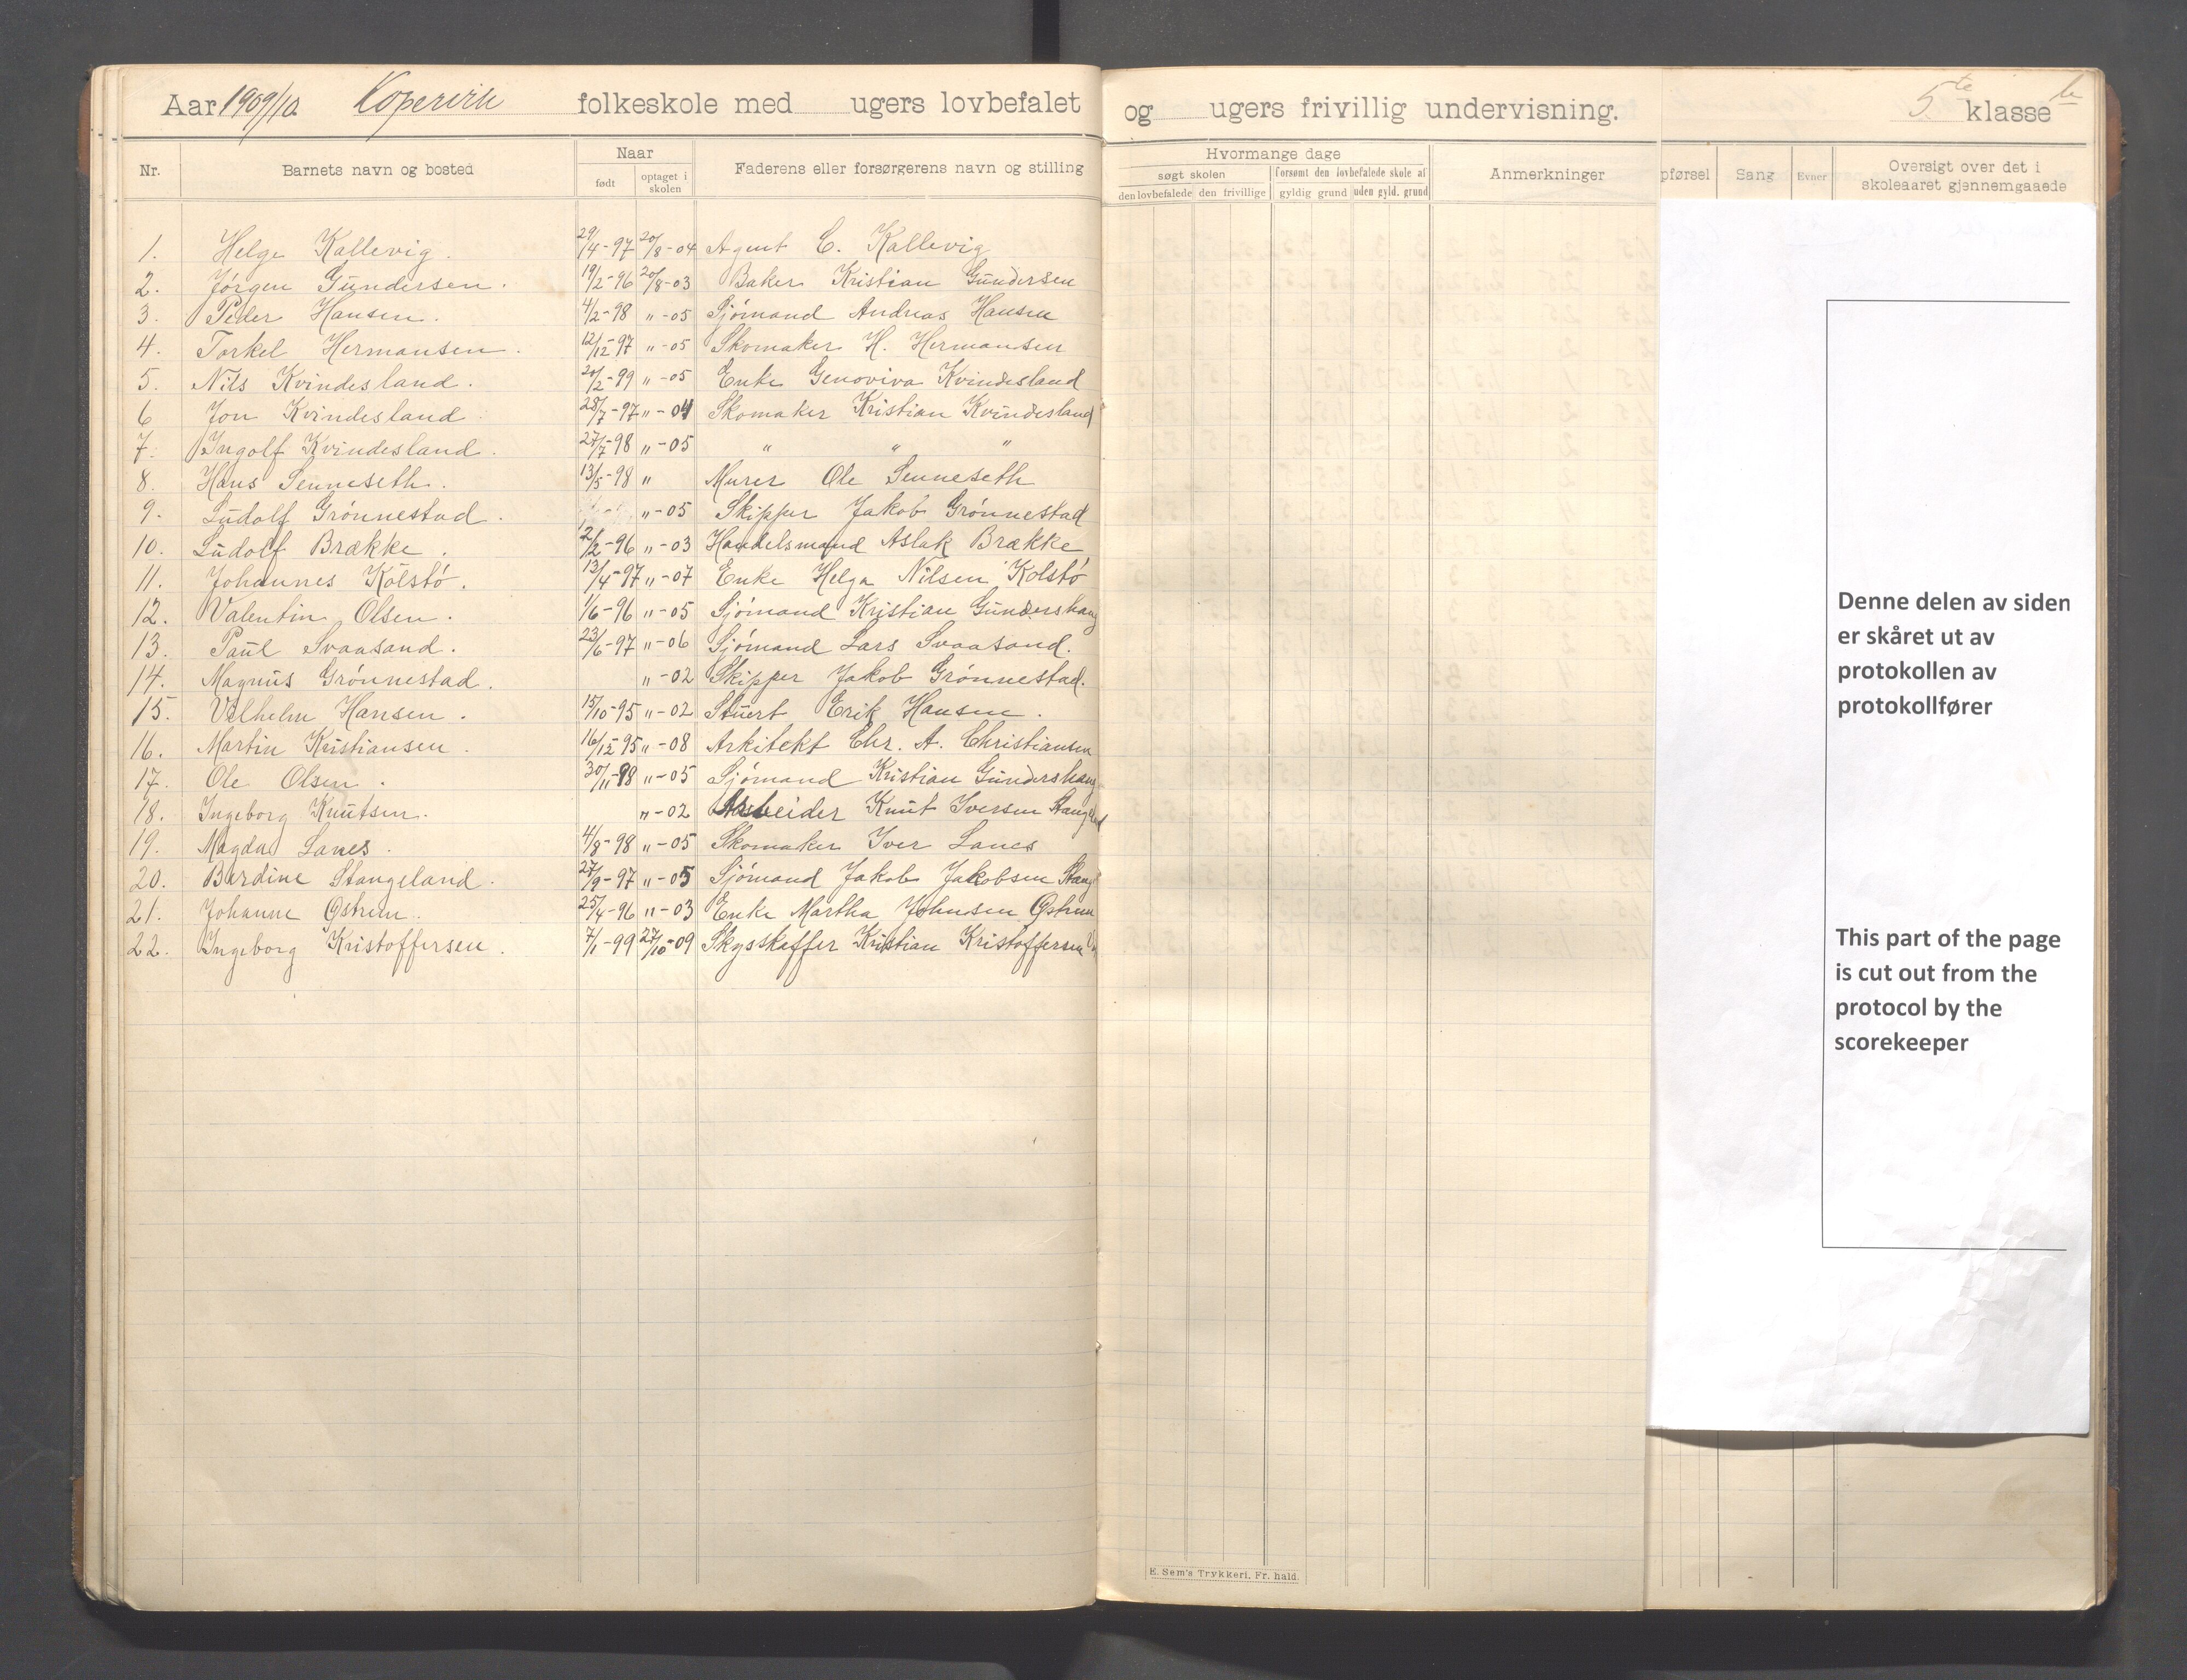 Aar 1909/10. Kopervik folkeskole med ugers lovbefalet og ugers frivillig undervisning. 5te klasse b
Nr. Barnets navn og bosted Naar født optaget i skolen Faderens eller forsørgerens navn og stilling Hvormange dage søgt skolen den lovbefalede den frivillige forsømt den lovbefalede skole af gyldig grund uden gyld. grund Anmerkninger pførsel Sang Evner Oversigt over det i skoleaaret gjennemgaaede
1. Helge Kallevig. 29/4-97 20/8-04 Agent C. Kallevig
2. Jörgen Gundersen. 19/2-96 20/8-03 Baker Kristian Gundersen
3. Peder Hansen. 4/2-98 "-05 Sjömand Andreas Hansen
4. Torkel Hermansen. 12/12-97 "-05 Skomaker H. Hermansen
5. Nils Kvindesland. 20/2-99 "-05 Enke Genoviva Kvindesland
6 Jon Kvindesland. 28/7-97 "-04 Skomaker Kristian Kvindesland
7. Ingolf Kvindesland. 27/7-98 "-05 " " "
8. Hans Senneseth. 13/5-98 " Murer Ole Senneseth
9. Ludolf Grönnestad. "-05 Skipper Jakob Grönnestad
10. Ludolf Brække. 2/2-96 "-03 Handelsmand Aslak Brække
11. Johannes Kolstö. 13/4-97 "-07 Enke Helga Nilsen Kolstö
12. Valentin Olsen. 1/6-96 "-05 Sjömand Kristian Gundershaug
13. Paul Svaasand. 23/6-97 "-06 Sjömand Lars Svaasand.
14. Magnus Grönnestad. "-02 Skipper Jakob Grönnestad.
15. Vilhelm Hansen. 15/10-95 "-02 Stuert Erik Hansen.
16. Martin Kristiansen. 16/12-95 "-08 Arkitekt Chr. A. Christiansen
17. Ole Olsen. 30/11-98 "-05 Sjömand Kristian Gundershaug
18. Ingeborg Knutsen. "-02 Arbeider Knut Iversen Stangeland
19. Magda Lanes. 4/8-98 "-05 Skomaker Iver Lanes
20. Berdine Stangeland. 27/9-97 "-05 Sjömand Jakob Jakobsen Stang
21. Johanne Østrem. 25/4-96 "-03 Enke Martha Johnsen Østrem
22. Ingeborg Kristoffersen. 7/1-99 27/10-09 Skysskaffer Kristian Kristoffersen
Denne delen av siden
er skåret ut av
protokollen av
protokollfører
This part of the page
is cut out from the
protocol by the
scorekeeper
E. Sem's Trykkeri, Fr. hald.